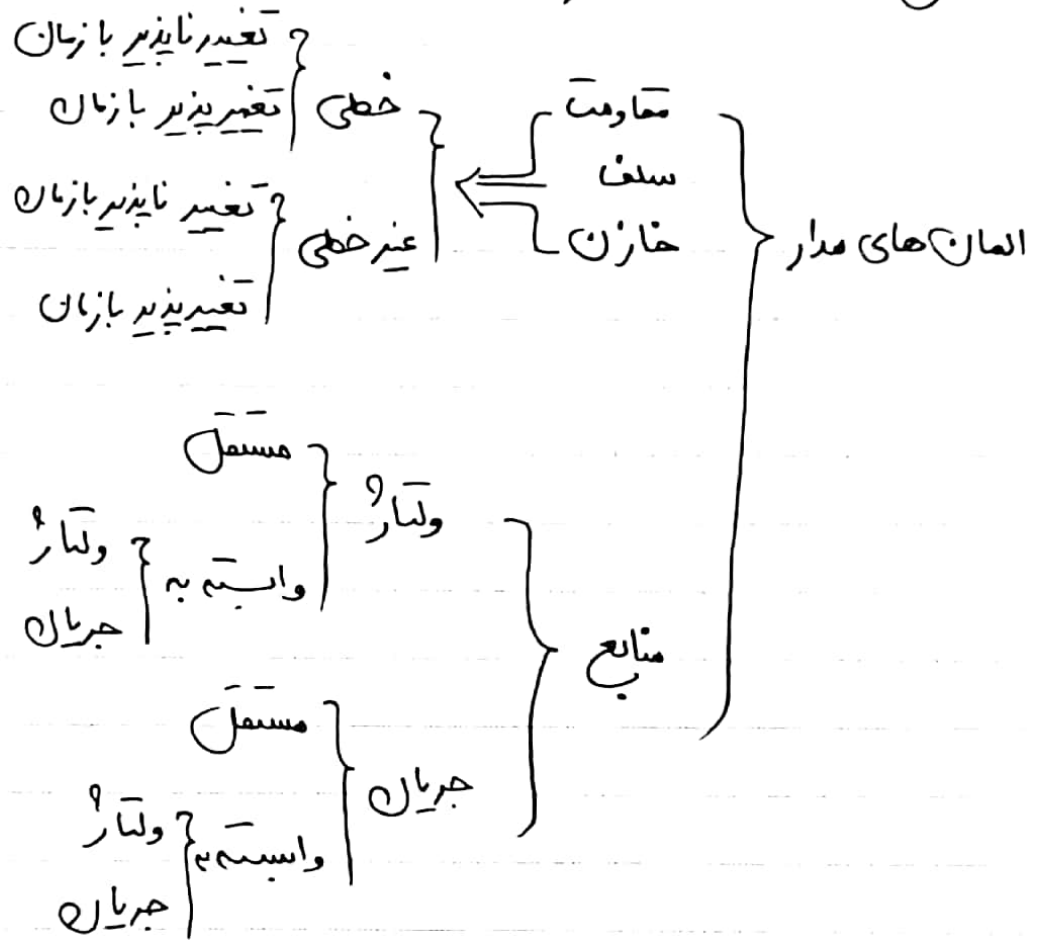 المان های مدار
مقاومت
سلف
خازن
خطی
تغییر ناپذیر با زمان
تغییر پذیر با زمان
غیر خطی
تغییر ناپذیر با زمان
تغییر پذیر با زمان
منابع
ولتاژ
مستقل
وابسته به
ولتاژ
جریان
جریان
مستقل
وابسته به
ولتاژ
جریان